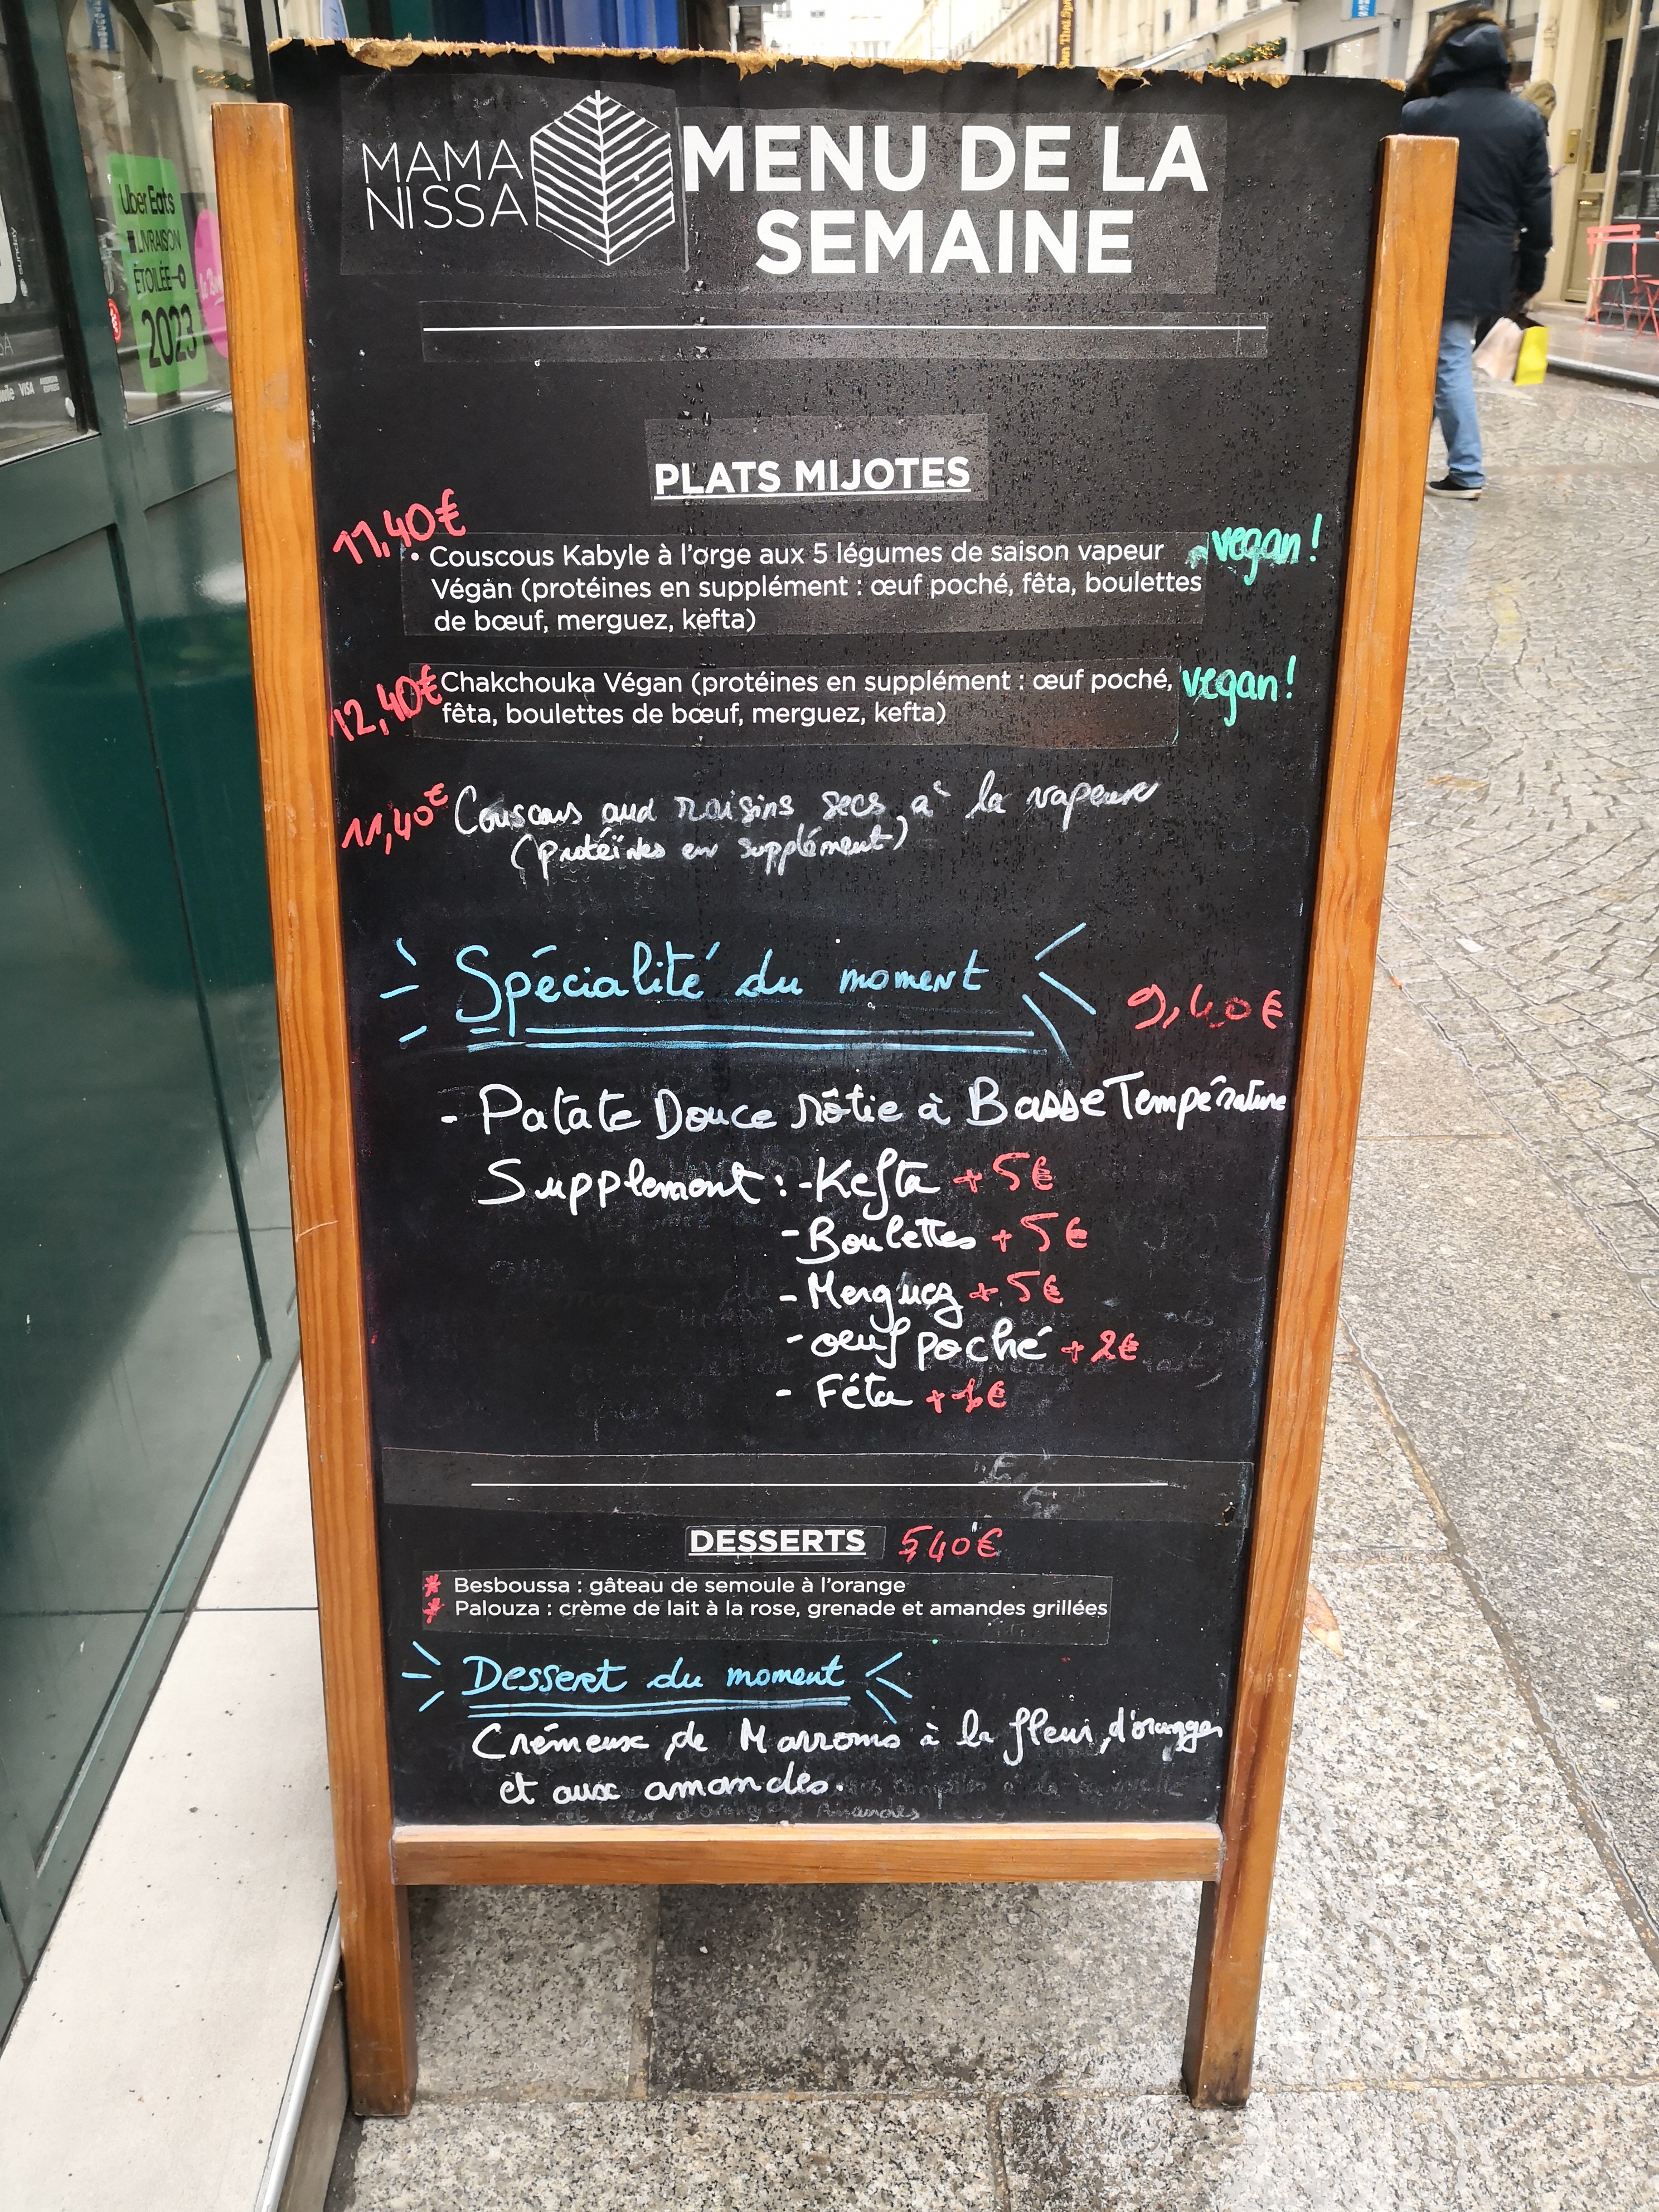 MAMA
NISSA
MENU DE LA
SEMAINE
Uber Eats
LIVRAISON
ÉTOILÉE
2023
sunday
VISA
PLATS MIJOTES
11,40€
• Couscous Kabyle à l'orge aux 5 légumes de saison vapeur vegan!
Végan (protéines en supplément : œuf poché, fêta, boulettes
de bœuf, merguez, kefta)
12,40€ Chakchouka Végan (protéines en supplément : œuf poché, vegan!
fêta, boulettes de bœuf, merguez, kefta)
11,40€ Couscous aux raisins secs à la vapeur
(protéïnes en supplément)
Spécialité du moment
9,40€
- Patate Douce rôtie à Basse Température
Supplement : - Kefta + 5€
- Boulettes + 5€
- Merguez + 5€
- oeuf poché + 2€
- Féta + 1€
DESSERTS 5,40€
* Besboussa : gâteau de semoule à l'orange
* Palouza : crème de lait à la rose, grenade et amandes grillées
Dessert du moment
Crémeux de Marrons à la fleur d'oranger
et aux amandes.